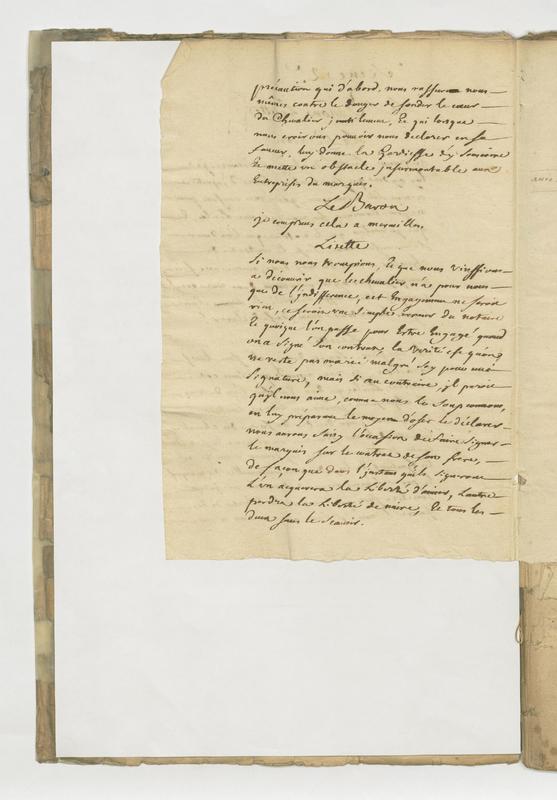 précaution qui d'abord nous rassure nous
mêmes contre le danger de sonder le cœur
du Chevalier; et qui lorsque
nous croirons pouvoir nous declarer en sa
faveur, luy donne la hardiesse d'y souscrire
et mette un obstacle insurmontable aux
Entreprises du marquis.
Le Baron
je comprens cela a merveilles
Lisette
Si nous nous trompions, et que nous vinssions
a decouvrir que le chevalier n'a pour nous
que de l'indifference, cet Engagement ne seroit
rien, ce seroit une simple erreur de notaire
Et quoique l'on passe pour Estre Engagé quand
on a signé son contrat, la verité est qu'on
ne reste pas marié malgré soy pour une
signature, mais si au contraire, il paroit
qu'il nous aime, comme nous le soupconnons,
en luy preparant le moyen d'oser le declarer
nous aurons saisy l'occasion de faire signer
le marquis sur le contrat de son frere,
de façon que dans l'instant qu'ils signeront
L'un acquerera la Liberté d'aimer, L'autre
perdra la Liberté de nuire, Et tous les
deux sans le scavoir.